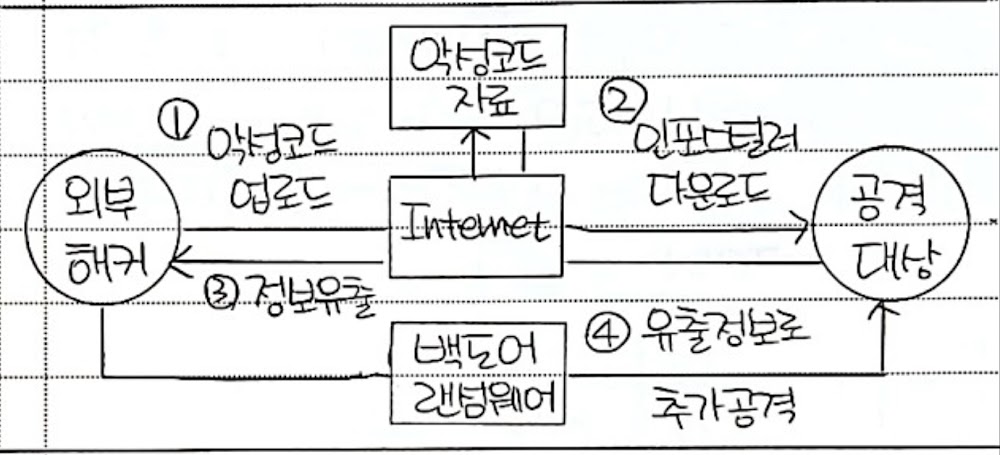 악성코드
자료
① 악성코드
업로드
② 인포스틸러
다운로드
외부
해커
Internet
공격
대상
③ 정보유출
백도어
랜섬웨어
④ 유출정보로
추가공격